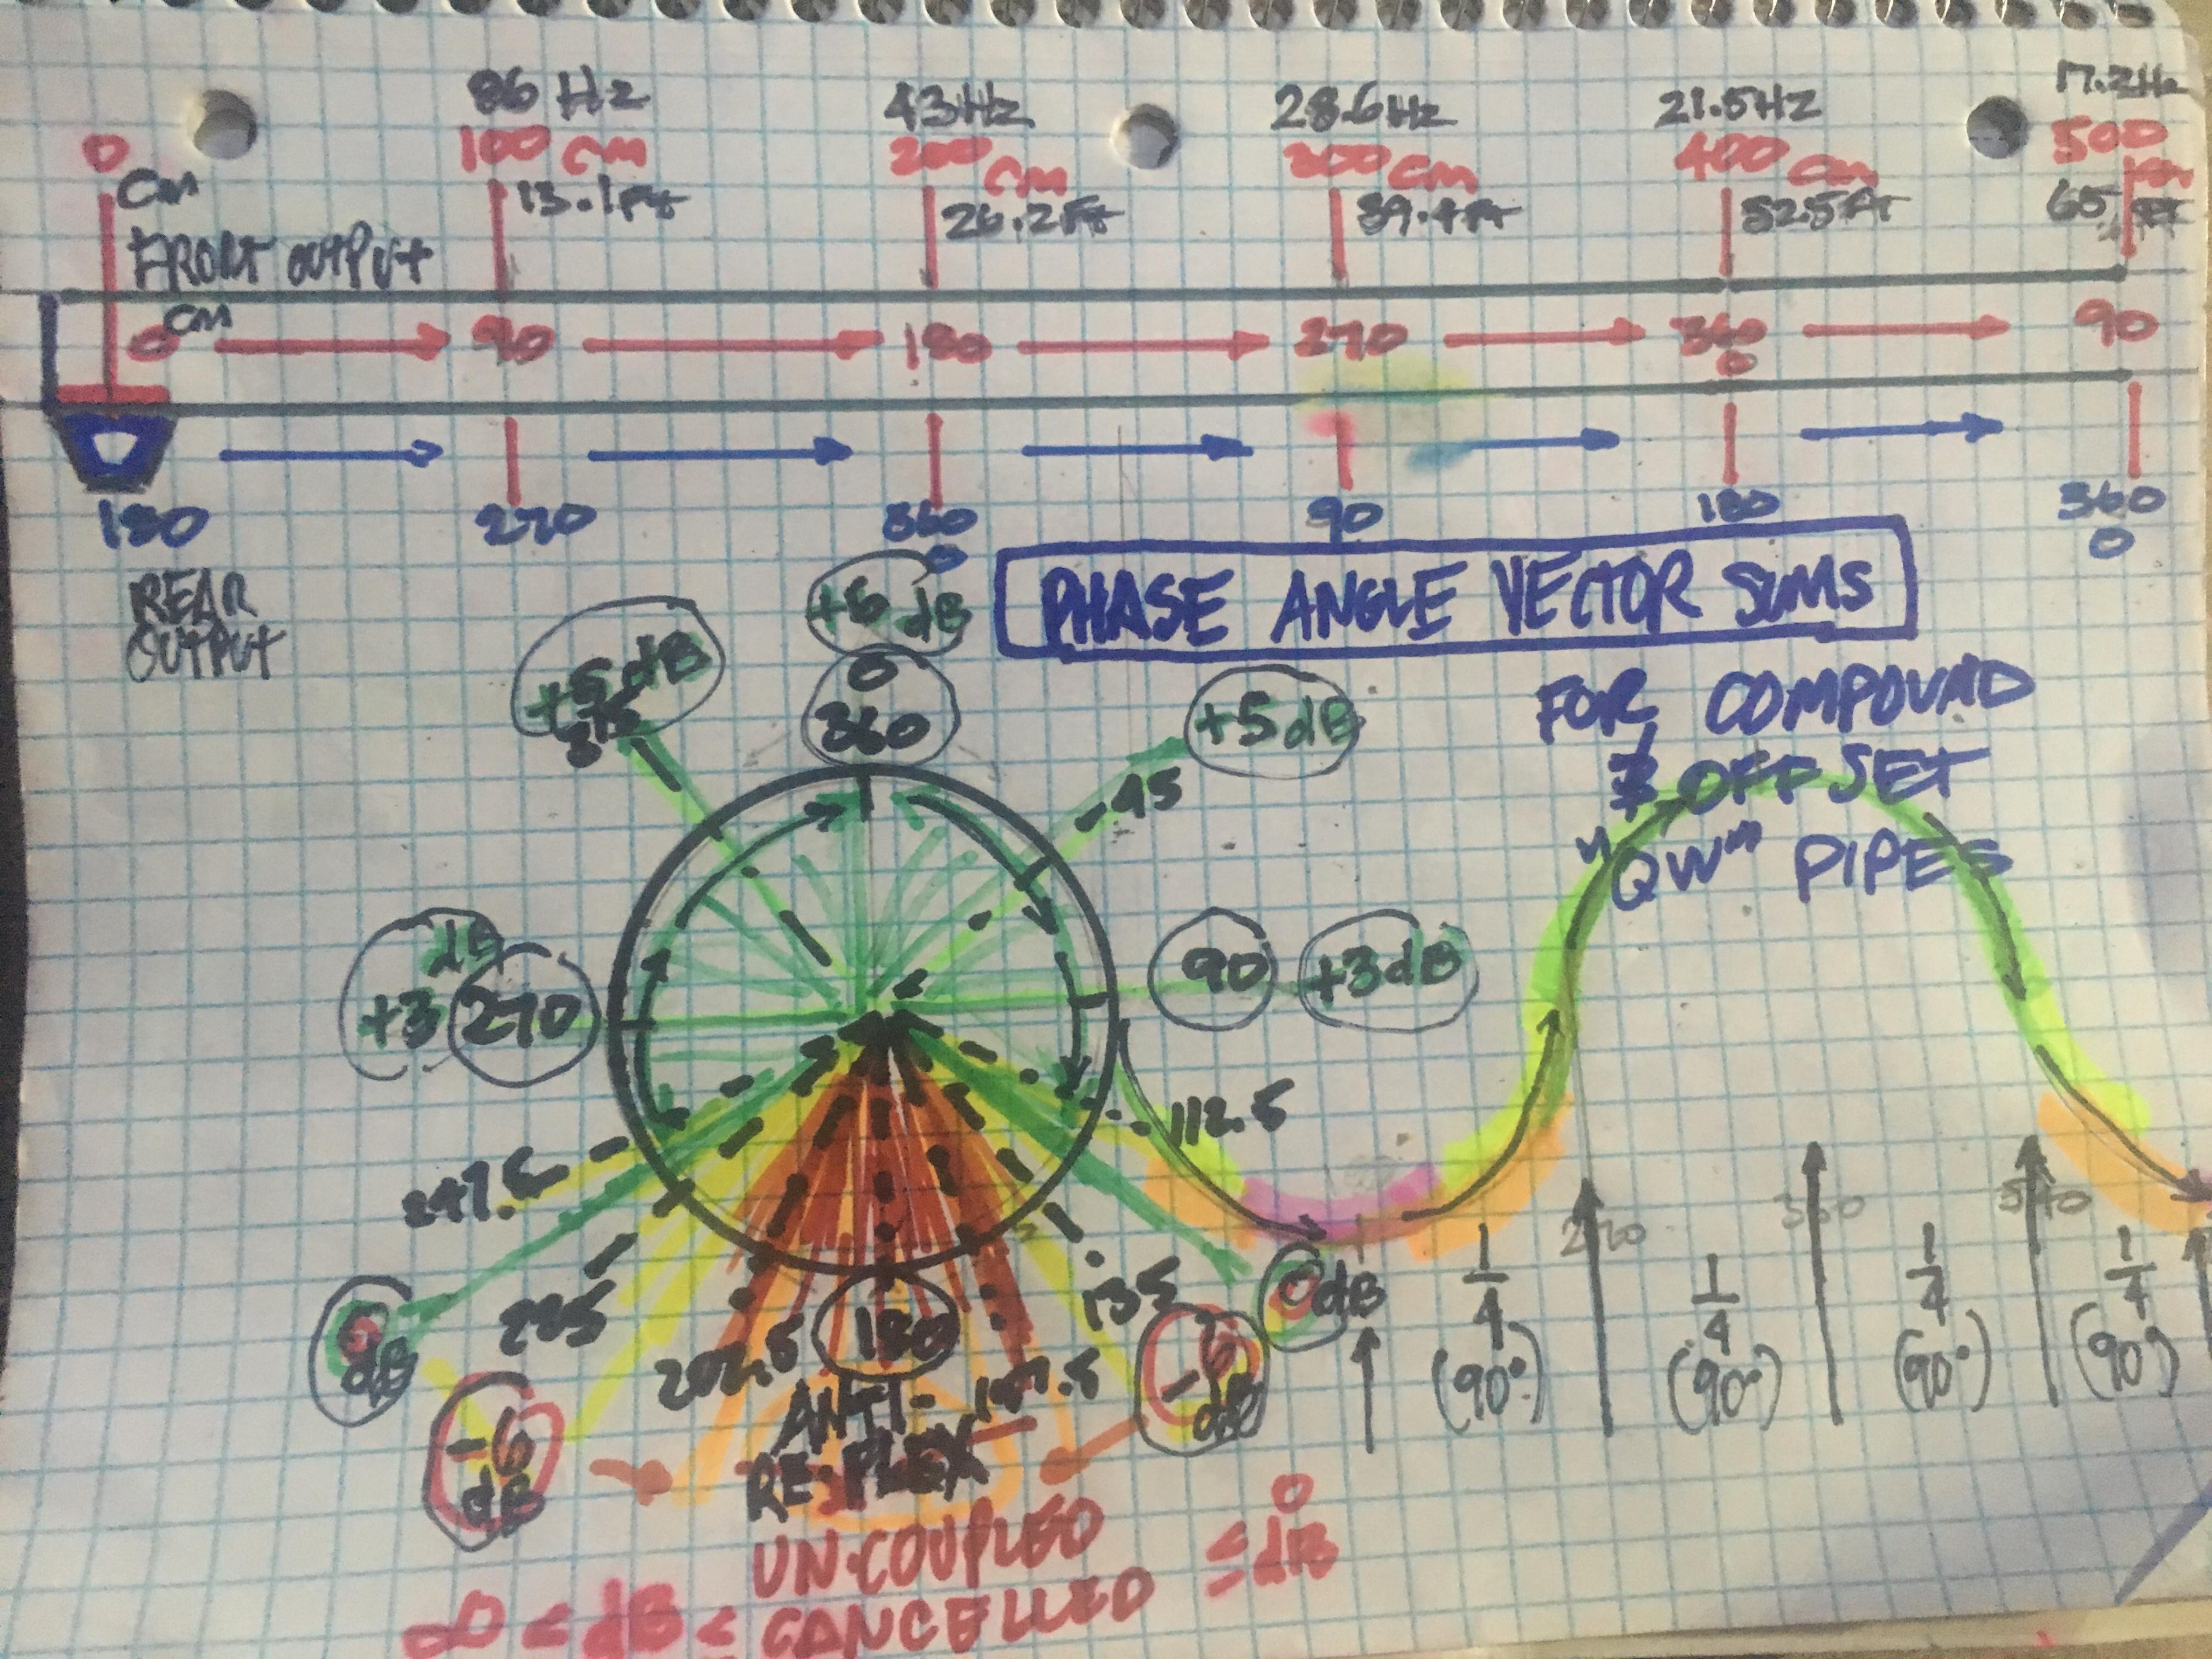 86 Hz 43Hz 28.6Hz 21.5HZ 17.2Hz
0 100 cm 200 cm 300 cm 400 cm 500 cm
cm 13.1Ft 26.2Ft 39.4Ft 52.5Ft 65
FRONT OUTPUT
cm
0 90 180 270 360 90
0
180 270 360 90 180 360
0 0
REAR
OUTPUT
PHASE ANGLE VECTOR SUMS
FOR COMPOUND
& OFFSET
"QW" PIPES
+6 dB
0
360
+5dB
315
+5dB
45
dB
+3 270
90 +3dB
112.5
247.5
225
135
0 dB
0dB
-6 dB
-6 dB
202.5 180 157.5
ANTI-
RE-PLEX
UN-COUPLED
CANCELLED
∞ < dB <
≤ 0 dB
270 360 540
1/4 1/4 1/4 1/4
(90°) (90°) (90°) (90°)